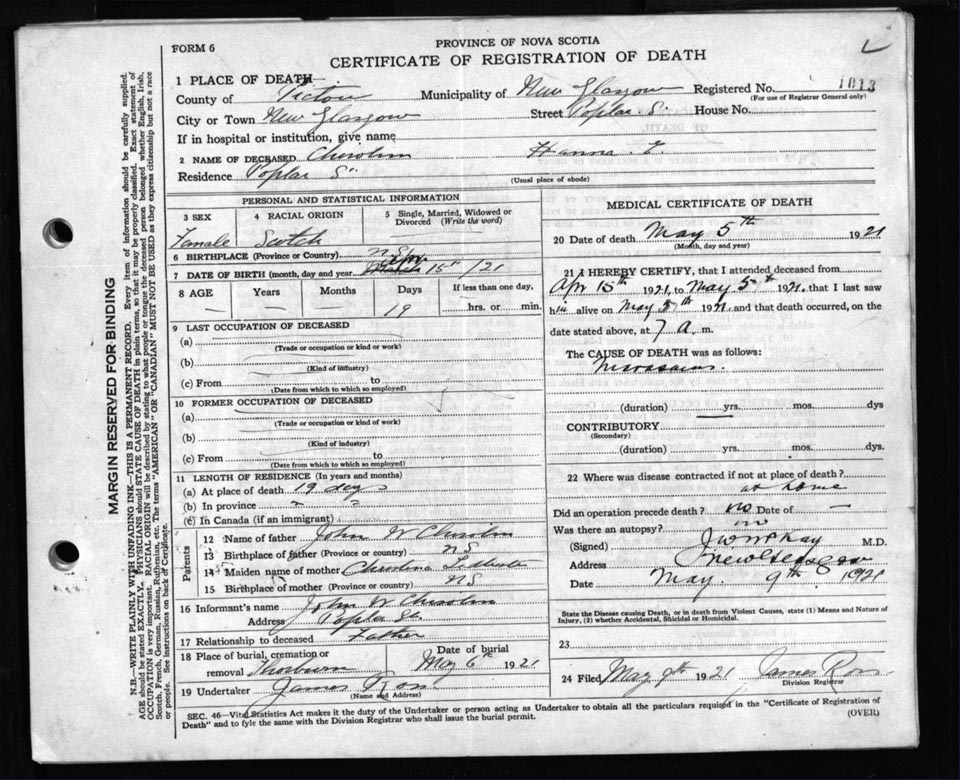 FORM 6
PROVINCE OF NOVA SCOTIA
CERTIFICATE OF REGISTRATION OF DEATH
1 PLACE OF DEATH—
County of Pictou Municipality of New Glasgow Registered No. 1013
(For use of Registrar General only)
City or Town New Glasgow Street Poplar S. House No.
If in hospital or institution, give name
2 NAME OF DECEASED Chisolm Hanna
Residence Poplar S
(Usual place of abode)
PERSONAL AND STATISTICAL INFORMATION
3 SEX 4 RACIAL ORIGIN 5 Single, Married, Widowed or Divorced (Write the word)
Female Scotch
6 BIRTHPLACE (Province or Country) N.S.
7 DATE OF BIRTH (month, day and year) Apr 15th /21
8 AGE Years Months Days If less than one day,
— — 19 hrs. or min.
9 LAST OCCUPATION OF DECEASED
(a)
(Trade or occupation or kind of work)
(b)
(Kind of industry)
(c) From to
(Date from which to which so employed)
10 FORMER OCCUPATION OF DECEASED
(a)
(Trade or occupation or kind of work)
(b)
(Kind of industry)
(c) From to
(Date from which to which so employed)
11 LENGTH OF RESIDENCE (In years and months)
(a) At place of death 19 days
(b) In province " "
(c) In Canada (if an immigrant)
Parents
12 Name of father John W Chisolm
13 Birthplace of father (Province or country) NS
14 Maiden name of mother Christina
15 Birthplace of mother (Province or country) NS
16 Informant's name John W Chisolm
Address Poplar St.
17 Relationship to deceased Father
18 Place of burial, cremation or removal Thorburn Date of burial May 6th 1921
19 Undertaker James Ross
(Name and Address)
MEDICAL CERTIFICATE OF DEATH
20 Date of death May 5th 1921
(Month, day and year)
21 I HEREBY CERTIFY, that I attended deceased from
Apr 15th 1921, to May 5th 1921. that I last saw
h alive on May 5th 1921. and that death occurred, on the
date stated above, at 7 A. m.
The CAUSE OF DEATH was as follows:
(duration) yrs. mos. dys
CONTRIBUTORY
(Secondary)
(duration) yrs. mos. dys.
22 Where was disease contracted if not at place of death?
at home
Did an operation precede death? no Date of —
Was there an autopsy? no
(Signed) M.D.
Address New Glasgow
Date May. 9th 1921
State the Disease causing Death, or in death from Violent Causes, state (1) Means and Nature of
Injury, (2) whether Accidental, Suicidal or Homicidal.
23
24 Filed May 9th 1921 James Ross
Division Registrar
SEC. 46—Vital Statistics Act makes it the duty of the Undertaker or person acting as Undertaker to obtain all the particulars required in the "Certificate of Registration of
Death" and to fyle the same with the Division Registrar who shall issue the burial permit.
(OVER)
MARGIN RESERVED FOR BINDING
N.B.—WRITE PLAINLY WITH UNFADING INK—THIS IS A PERMANENT RECORD. Every item of information should be carefully supplied.
AGE should be stated EXACTLY. PHYSICIANS should STATE CAUSE OF DEATH in plain terms, so that it may be properly classified. Exact statement of
OCCUPATION is very important. RACIAL ORIGIN will be described by stating to what people or tongue the deceased person belonged whether English, Irish,
Scotch, French, German, Russian, Ruthenian, etc. The terms "AMERICAN" or "CANADIAN" MUST NOT BE USED as they express citizenship but not a race
or people. See instructions on back of Certificate.